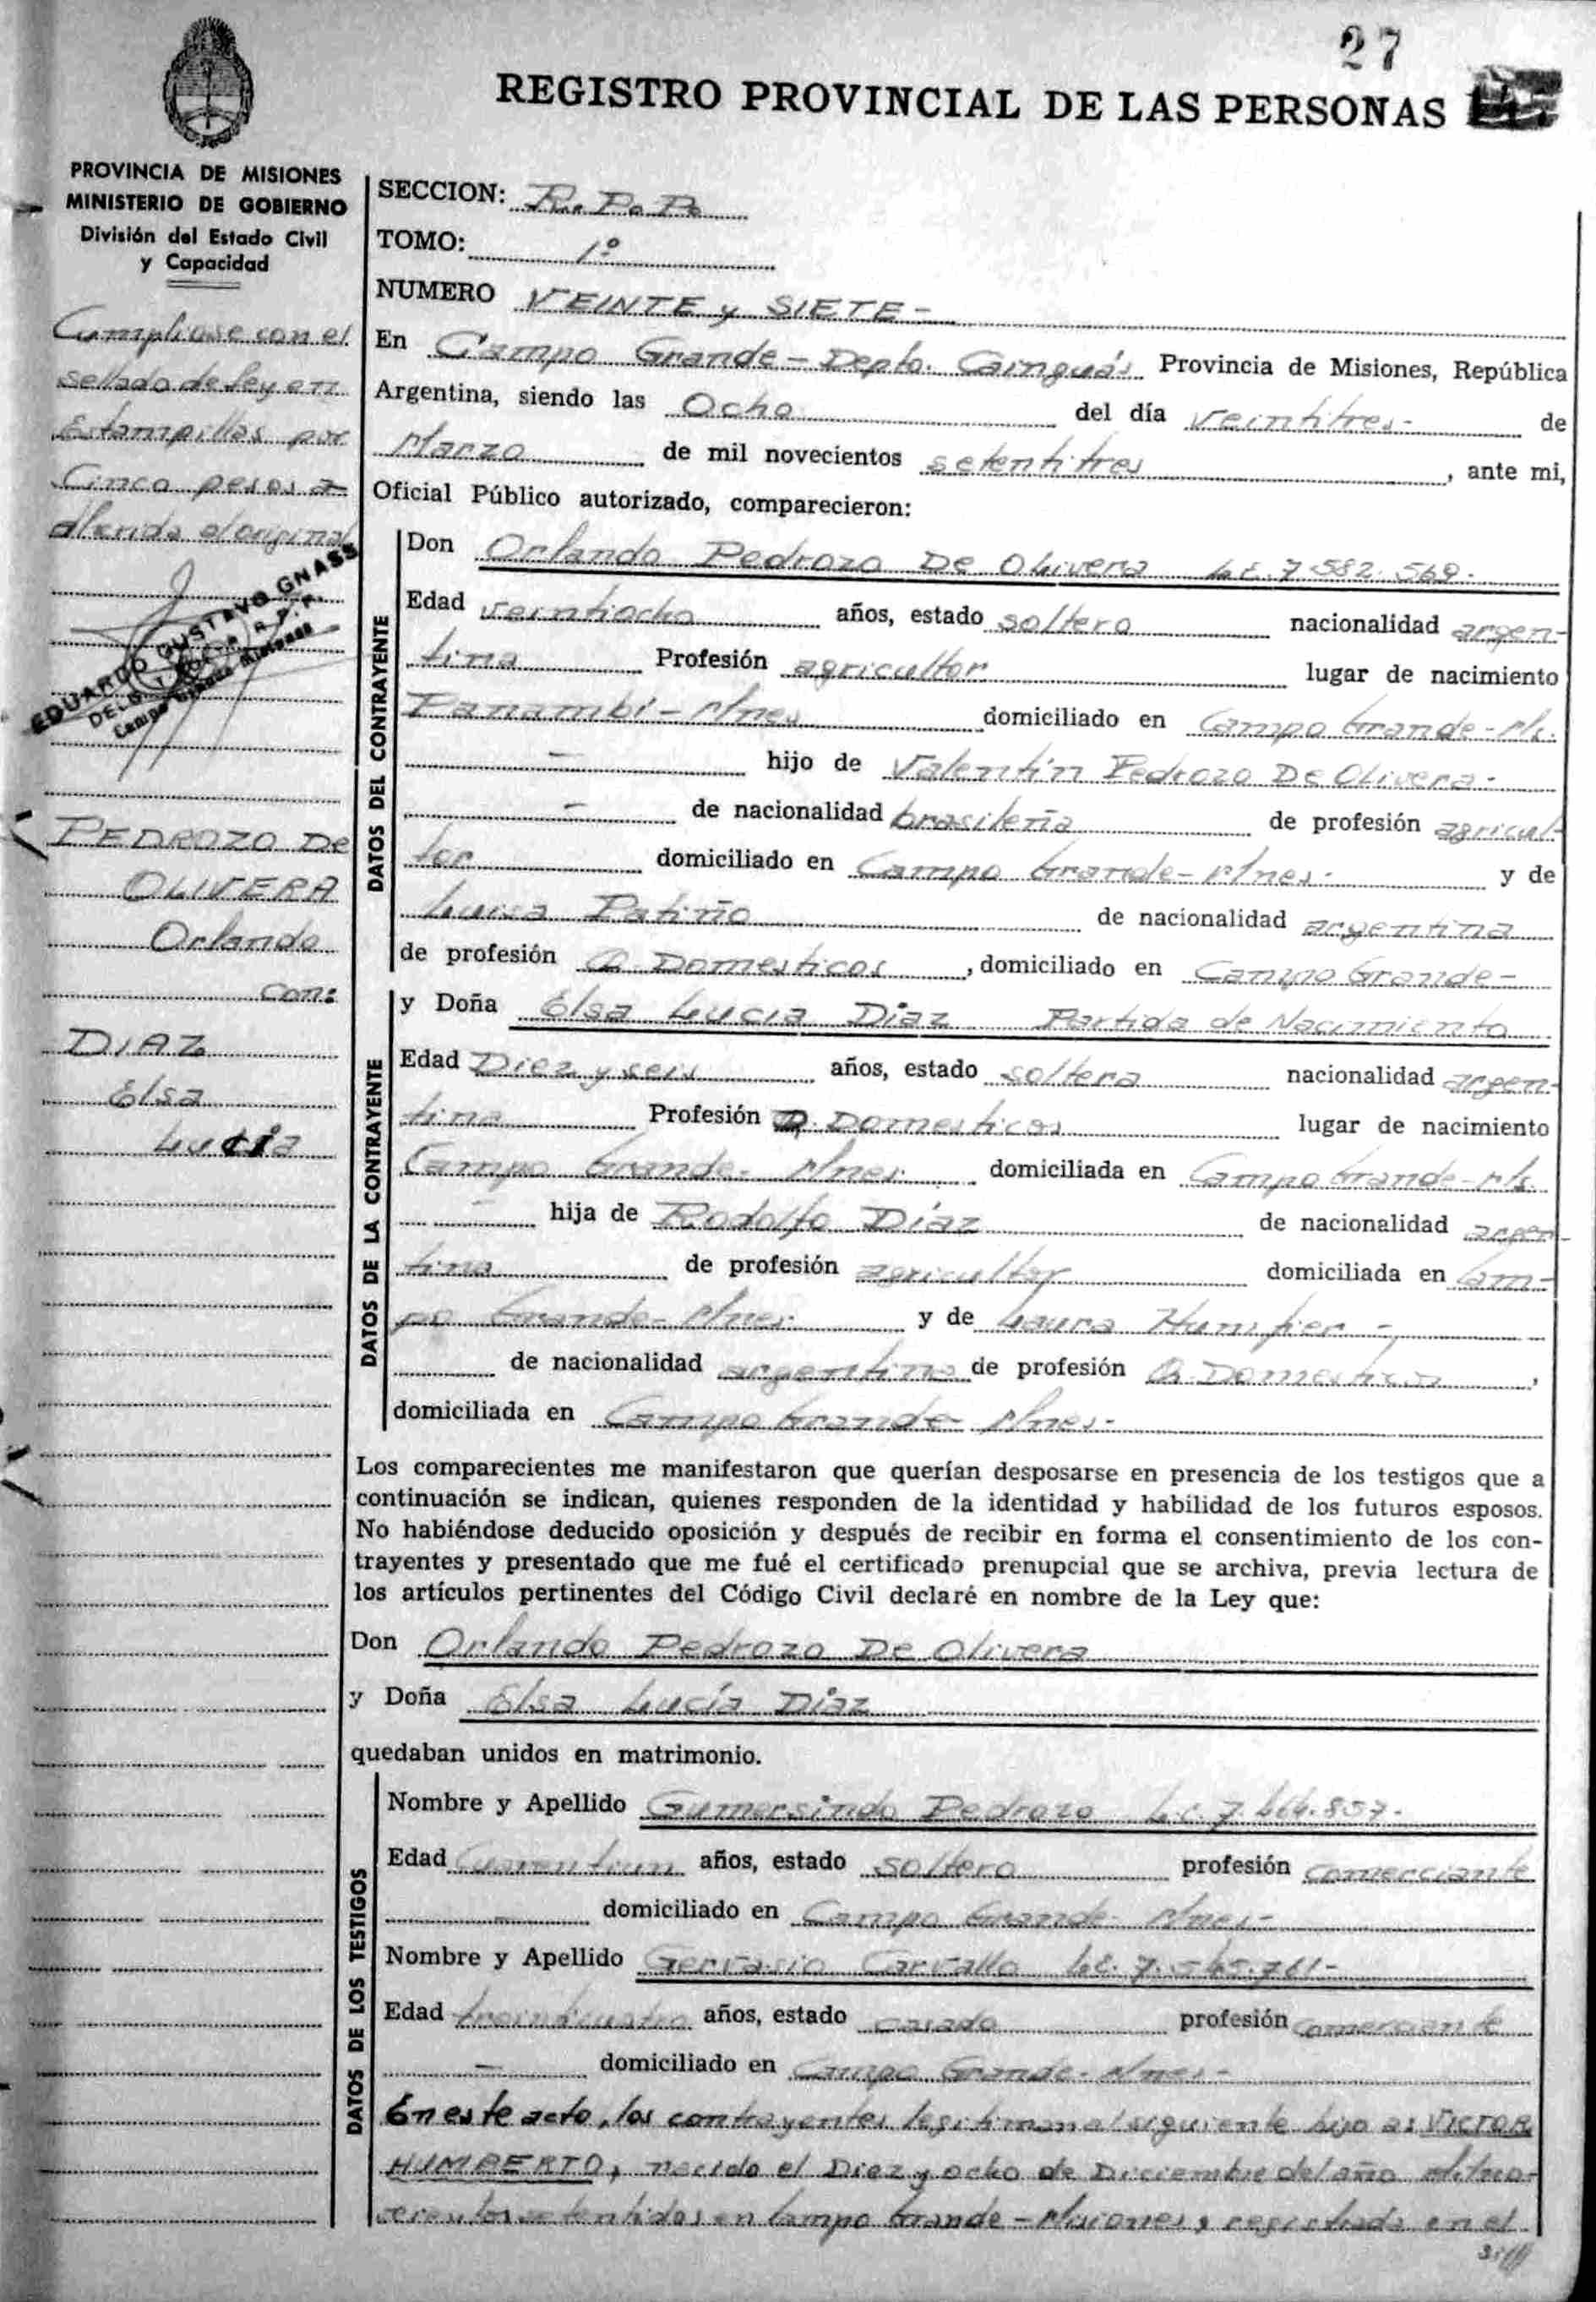 27
REGISTRO PROVINCIAL DE LAS PERSONAS
PROVINCIA DE MISIONES
MINISTERIO DE GOBIERNO
División del Estado Civil
y Capacidad
Cumpliose con el
sellado de ley en
Estampillas por
Cinco pesos
al original
EDUARDO GUSTAVO GNASS
Campo Grande Misiones
PEDROZO De
OLIVERA
Orlando
con:
DIAZ
Elsa
Lucia
SECCION: R. P. P.
TOMO: 1º
NUMERO VEINTE y SIETE -
En Campo Grande - Depto. Cainguás Provincia de Misiones, República
Argentina, siendo las Ocho del día veintitres - de
Marzo de mil novecientos setentitres, ante mi,
Oficial Público autorizado, comparecieron:
DATOS DEL CONTRAYENTE
Don Orlando Pedrozo De Olivera L.E. 7.582.569.
Edad veintiocho años, estado soltero nacionalidad argen-
tina Profesión agricultor lugar de nacimiento
Panambí - Mnes domiciliado en Campo Grande - Ms.
- hijo de Valentín Pedrozo De Olivera -
- de nacionalidad brasileña de profesión agricul-
tor domiciliado en Campo Grande - Mnes - y de
Luisa Patiño de nacionalidad argentina
de profesión Q. Domesticos, domiciliado en Campo Grande -
DATOS DE LA CONTRAYENTE
y Doña Elsa Lucia Diaz Partida de Nacimiento
Edad Diez y seis años, estado soltera nacionalidad argen-
tina Profesión Q. Domesticos lugar de nacimiento
Campo Grande - Mnes. domiciliada en Campo Grande - Ms.
- hija de Rodolfo Díaz de nacionalidad argen-
tina de profesión agricultor domiciliada en Cam-
po Grande - Mnes. y de Laura -
de nacionalidad argentina de profesión Q. Domesticos,
domiciliada en Campo Grande - Mnes -
Los comparecientes me manifestaron que querían desposarse en presencia de los testigos que a
continuación se indican, quienes responden de la identidad y habilidad de los futuros esposos.
No habiéndose deducido oposición y después de recibir en forma el consentimiento de los con-
trayentes y presentado que me fué el certificado prenupcial que se archiva, previa lectura de
los artículos pertinentes del Código Civil declaré en nombre de la Ley que:
Don Orlando Pedrozo De Olivera
y Doña Elsa Lucía Díaz
quedaban unidos en matrimonio.
DATOS DE LOS TESTIGOS
Nombre y Apellido Gumersindo Pedrozo
Edad años, estado soltero profesión comerciante
- domiciliado en Campo Grande - Mnes -
Nombre y Apellido Gervasio Carvallo
Edad treinticuatro años, estado casado profesión comerciante
- domiciliado en Campo Grande - Mnes -
En este acto, los contrayentes legitiman al siguiente hijo a: VICTOR
HUMBERTO, nacido el Diez y ocho de Diciembre del año Mil no-
vecientos setentidos en Campo Grande - Misiones, registrada en el